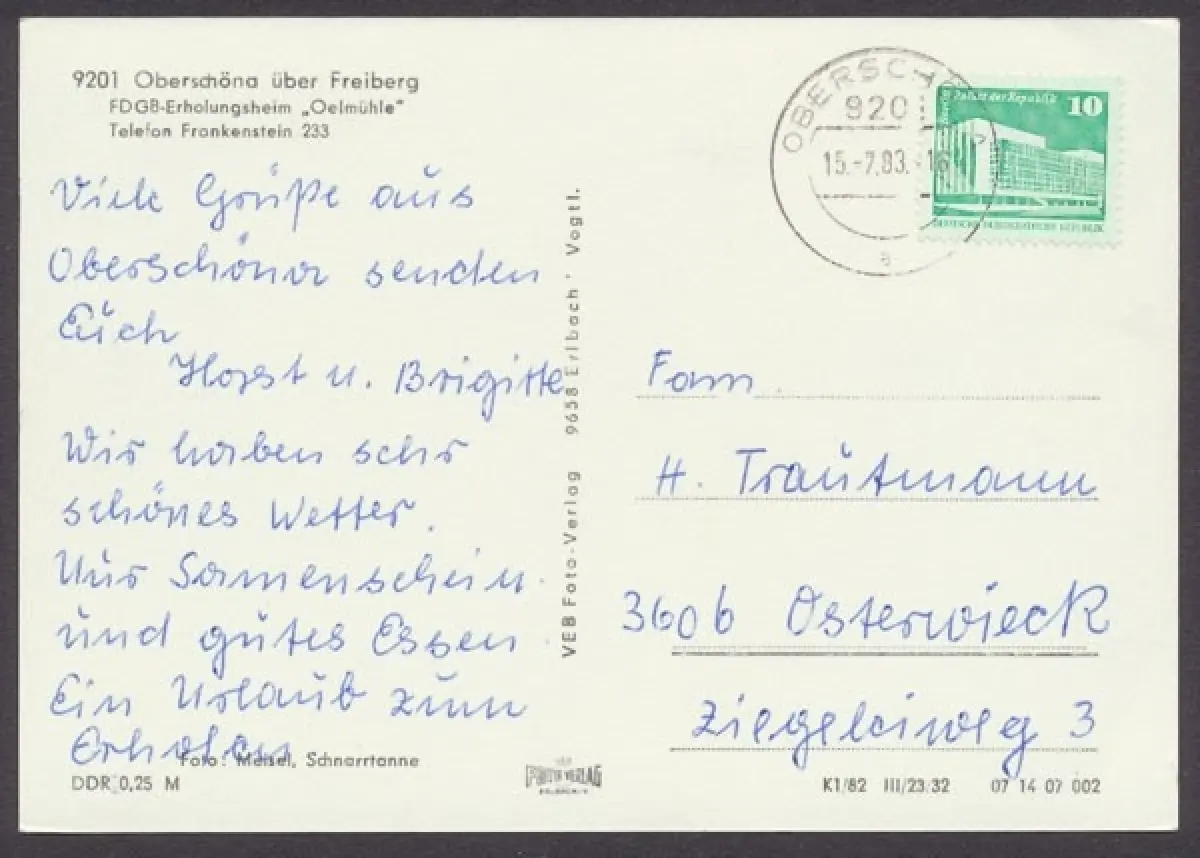 9201 Oberschöna über Freiberg
FDGB-Erholungsheim „Oelmühle“
Telefon Frankenstein 233
OBERSCHÖ
920
15.-7.83.-16
a
Berlin, Palast der Republik 10
DEUTSCHE DEMOKRATISCHE REPUBLIK
Viele Grüße aus
Oberschöna senden
Euch
Horst u. Brigitte
Wir haben sehr
schönes Wetter.
Nur Sonnenschein
und gutes Essen
Ein Urlaub zum
Erholen
Foto: Meisel, Schnarrtanne
DDR 0,25 M
VEB Foto-Verlag 9658 Erlbach · Vogtl.
FOTO VERLAG
ERLBACH/V
Fam.
H. Trautmann
3606 Osterwieck
Ziegeleiweg 3
K1/82 III/23/32 07 14 07 002